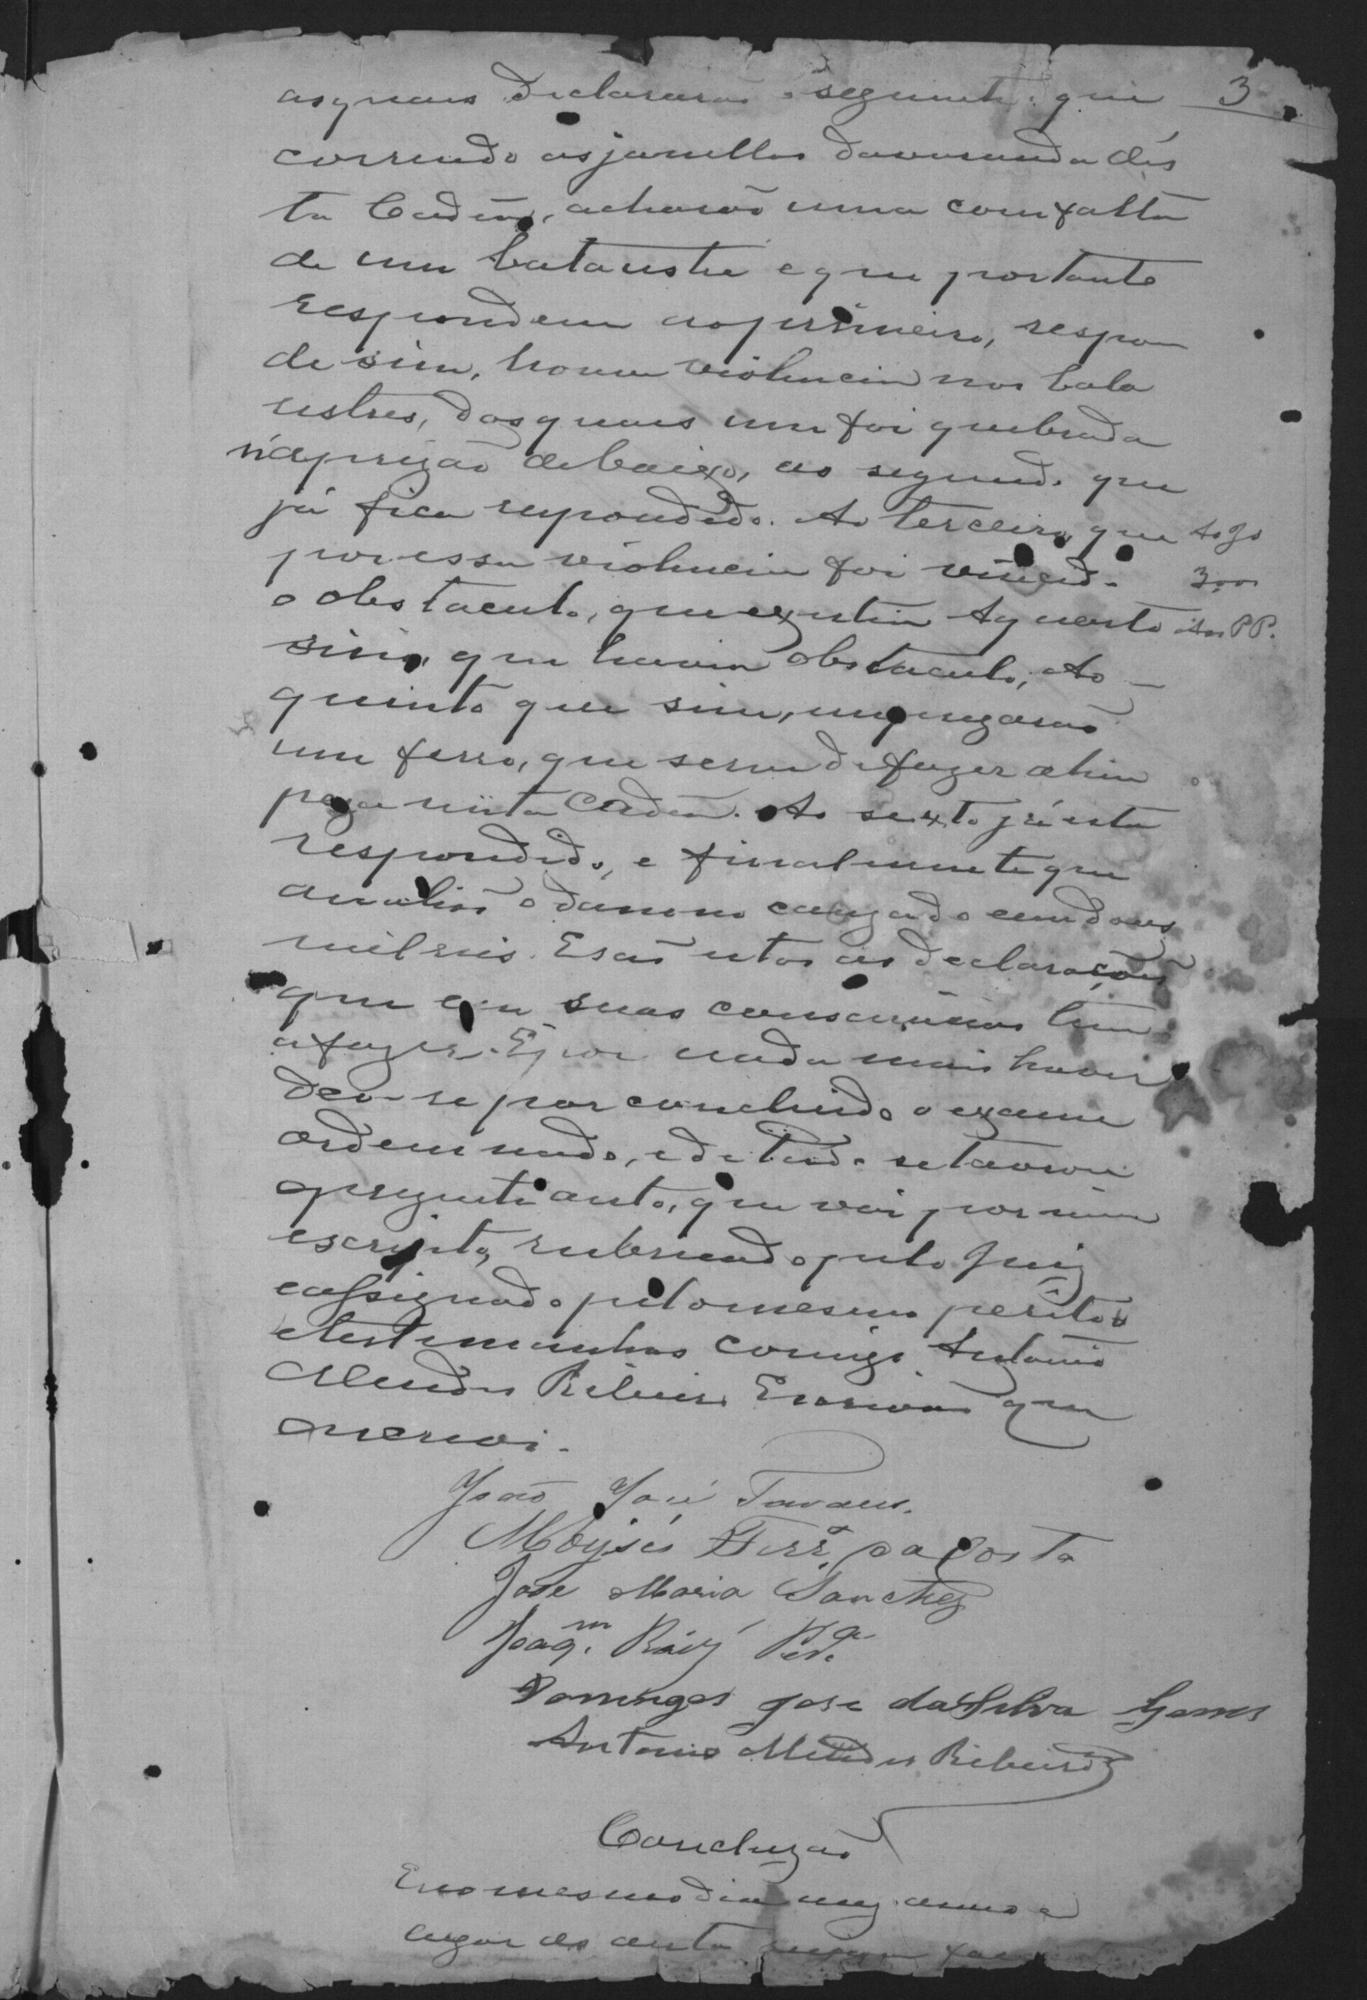 as quaes declararão o seguinte: que 3
correndo as janellas da varanda dés
ta Cadêa, acharão uma com falta
de um balaustre e que portanto
respondem ao primeiro, respon
de sim, houve violencia nos bala
ustres, dos quaes um foi quebrado
n'aprizão debaixo, ao segundo que
já fica respondido. Ao terceiro, que
por essa violencia foi vencido
o obstaculo, que existia Aquarto
sim, que havia obstaculo, Ao
quinto que sim, empregarão
um ferro, que serve de fazer a lim
peza nésta Cadêa. Ao sexto já esta
respondido, e finalmente que
avalião o damno cauzado em dous
mil reis. E são estas as declarações
que em suas consciencias tem
a fazer. E por nada mais haver
deo-se por concluido o exame
ordennado, e de tudo se lavrou
o prezente auto, que vai por mim
escripto, rubricado pelo Juiz
e assignado pelo mesmo peritos
e testemunhas comigo Antonio
Mendes Ribeiro Escrivão que
o escrevi.
João José Tavares.
Moysés Ferrª da Costa
José Maria Sanchez
Joaqm. Ruiz
Domingos José da Silva Gomes
Antonio Mendes Ribeiro
Concluzão
E no mesmo dia mez anno e
lugar